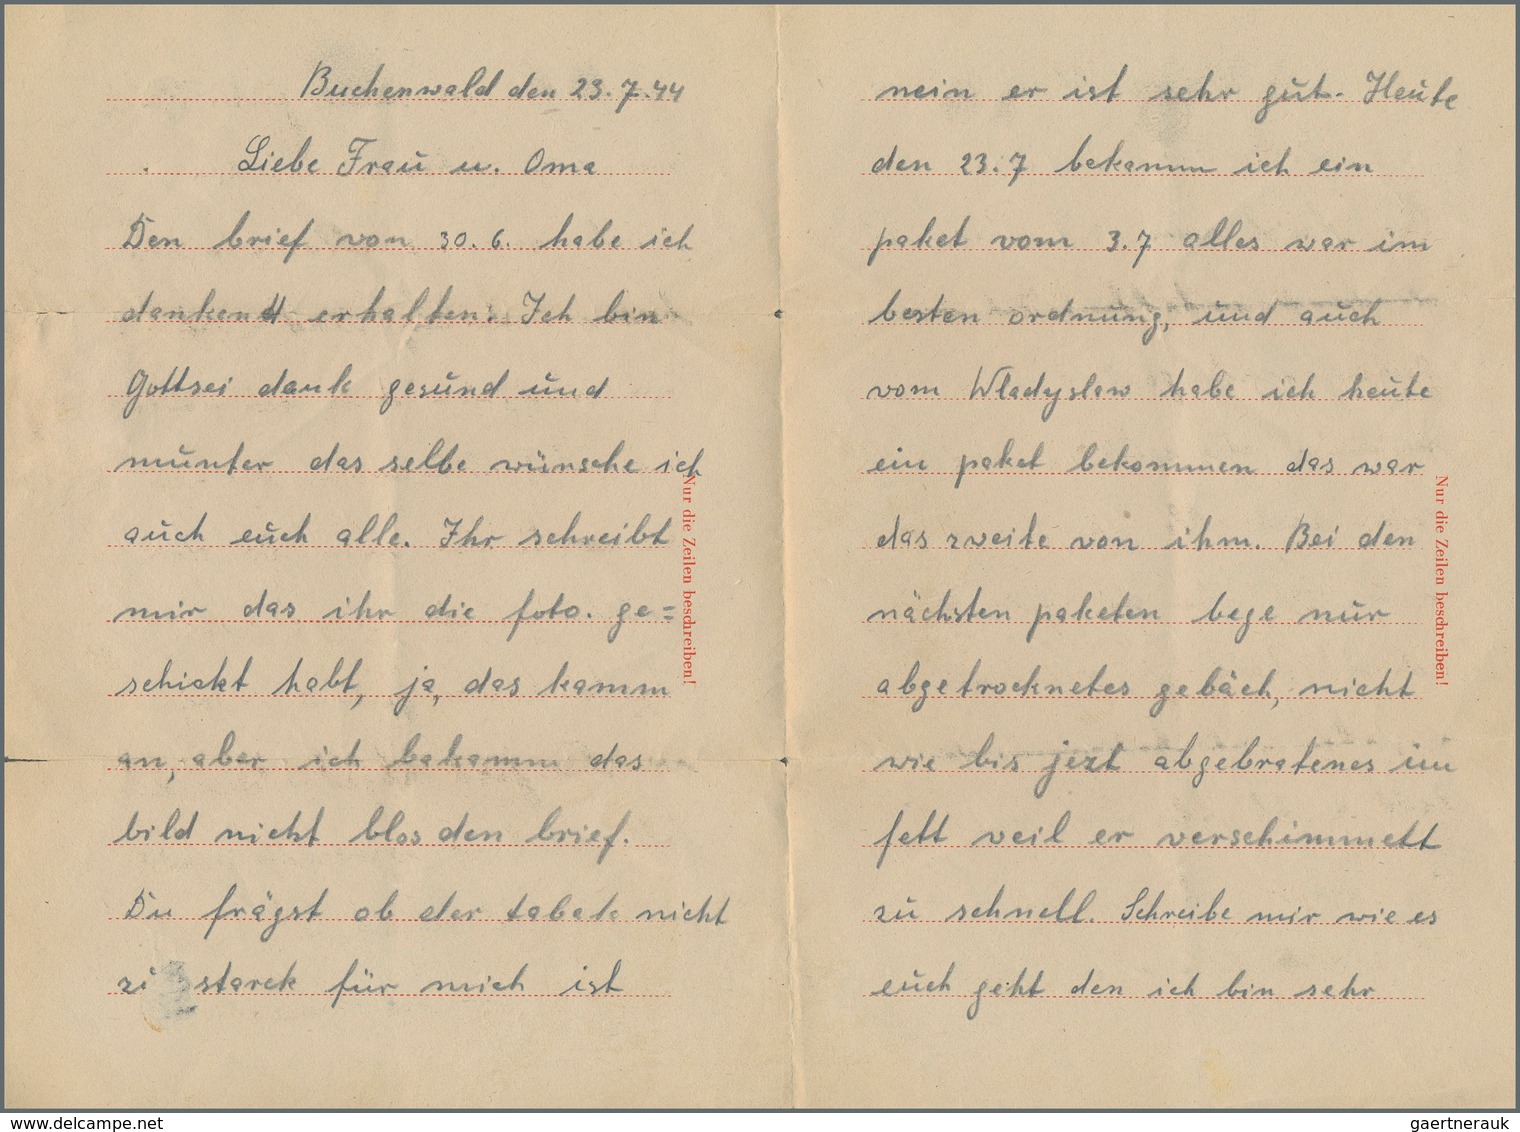 Buchenwald den 23.7.44
Liebe Frau u. Oma
Den brief von 30.6. habe ich
dankend erhalten. Ich bin
Gottsei dank gesund und
munter das selbe wünsche ich
auch euch alle. Ihr schreibt
mir das ihr die foto. ge=
schickt habt, ja, das kamm
an, aber ich bekamm das
bild nicht blos den brief.
Du frägst ob der tabak nicht
zu starck für mich ist
Nur die Zeilen beschreiben!
nein er ist sehr gut. Heute
den 23.7 bekamm ich ein
paket vom 3.7 alles war im
besten ordnung, und auch
vom Wladyslaw habe ich heute
ein paket bekommen das war
das zweite von ihm. Bei den
nächsten paketen bege nur
abgetrocknetes gebäck, nicht
wie bis jezt abgebratenes im
fett weil er verschimmelt
zu schnell. Schreibe mir wie es
euch geht den ich bin sehr
Nur die Zeilen beschreiben!
delcampe.net
gaertnerauk